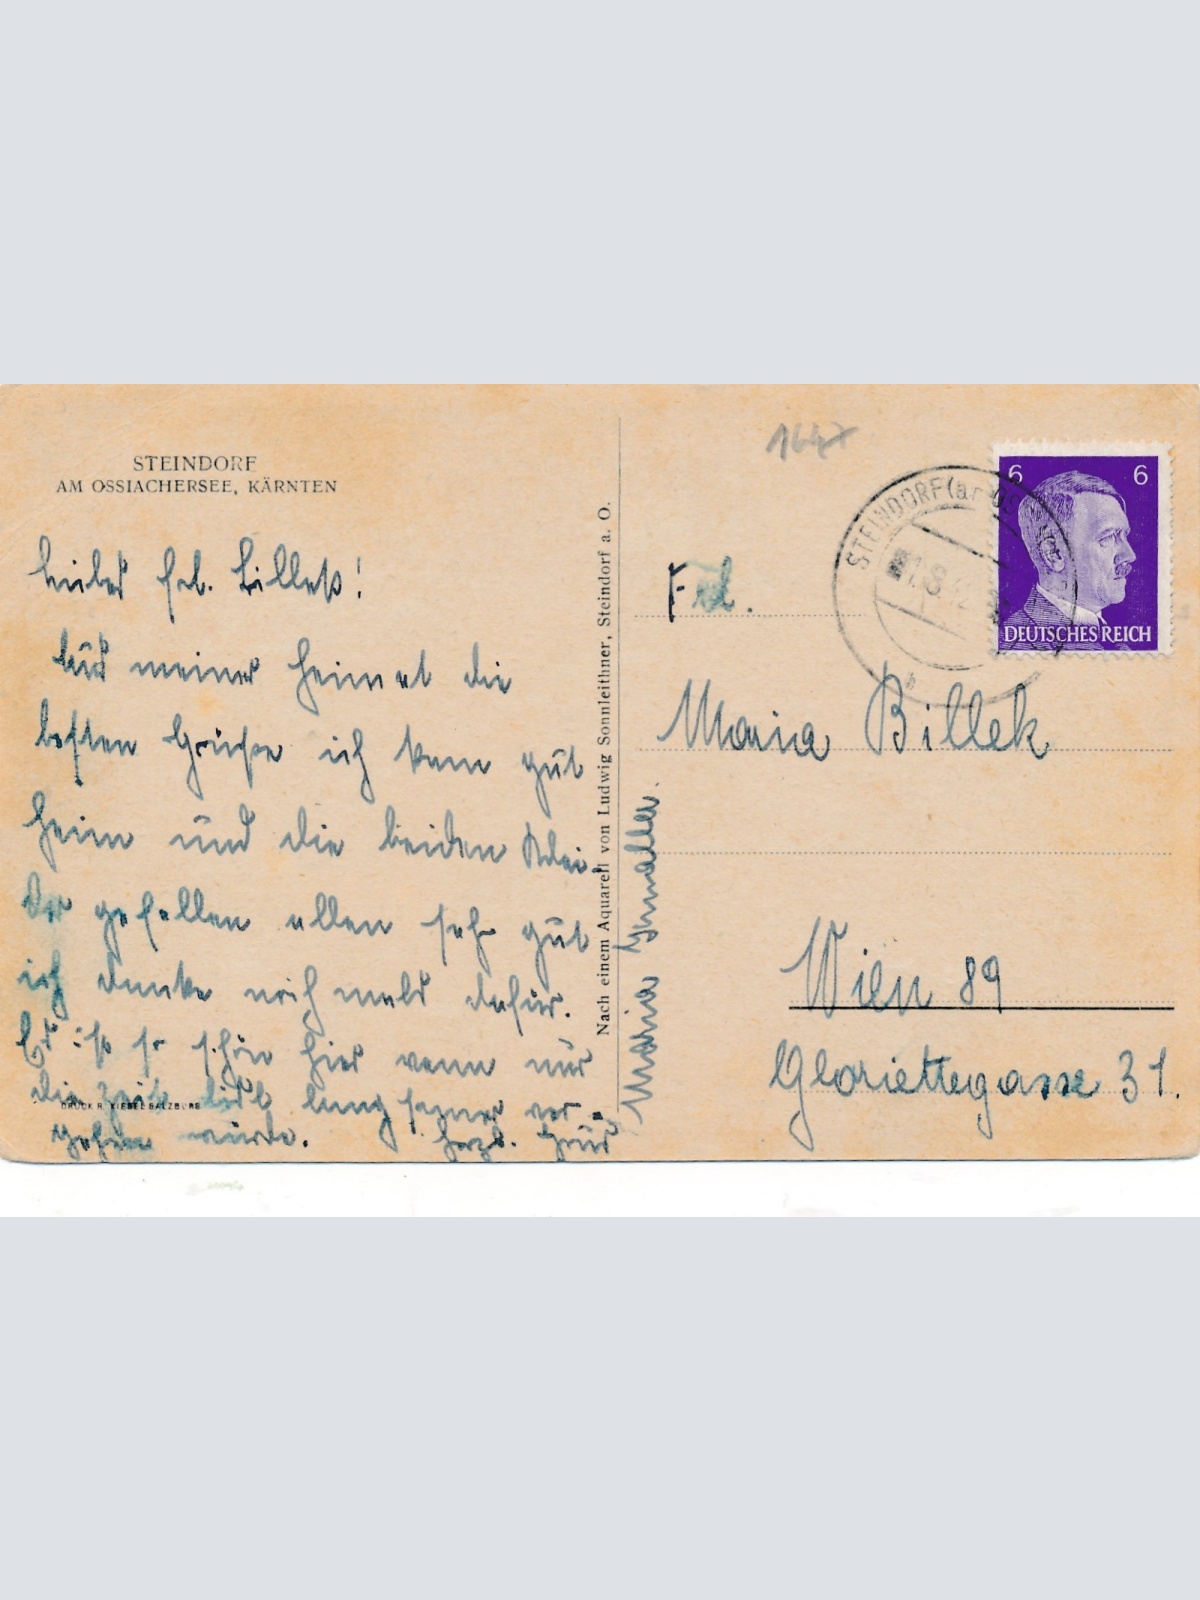 STEINDORF
AM OSSIACHERSEE, KÄRNTEN
Liebes Frl. Billek!
Aus meiner Heimat die
besten Grüße ich kam gut
heim und die beiden Klei-
der gefallen allen sehr gut
ich danke noch mals dafür.
Es ist so schön hier wenn nur
die Zeit langsamer ver-
gehen würde. Herzl. Gruß
Maria
DRUCK R. KIESEL SALZBURG
Nach einem Aquarell von Ludwig Sonnleithner, Steindorf a. O.
STEINDORF (a
6 6
DEUTSCHES REICH
Frl.
Maria Billek
Wien 89
Gloriettegasse 31.